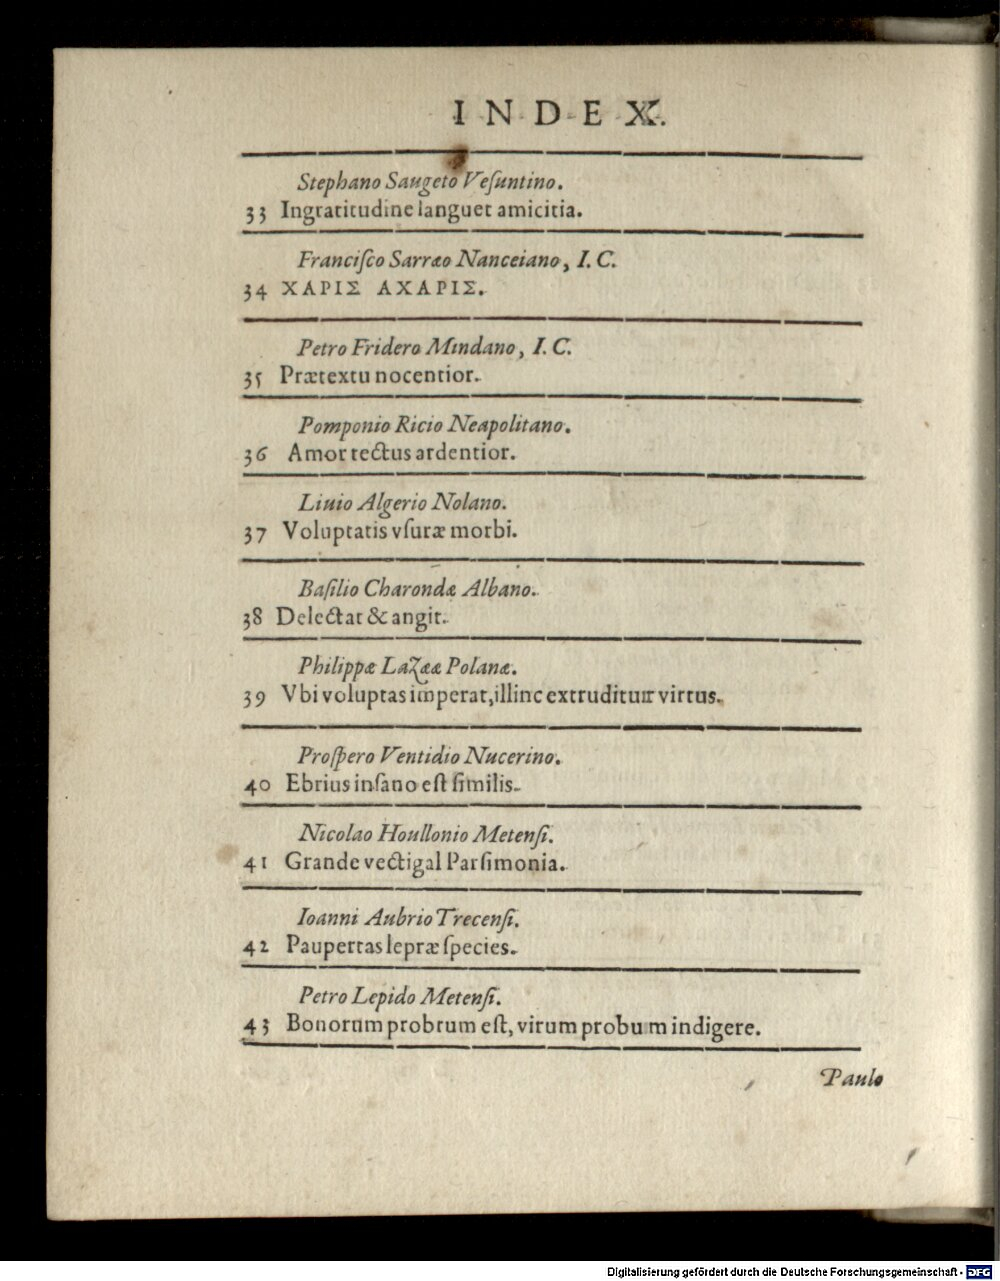 INDEX.
Stephano Saugeto Veſuntino.
33 Ingratitudine languet amicitia.
Franciſco Sarræo Nanceiano, I. C.
34 ΧΑΡΙΣ ΑΧΑΡΙΣ.
Petro Fridero Mindano, I. C.
35 Prætextu nocentior.
Pomponio Ricio Neapolitano.
36 Amor tectus ardentior.
Liuio Algerio Nolano.
37 Voluptatis vſuræ morbi.
Baſilio Charondæ Albano.
38 Delectat & angit.
Philippæ Lazææ Polanæ.
39 Vbi voluptas imperat, illinc extruditur virtus.
Proſpero Ventidio Nucerino.
40 Ebrius inſano eſt ſimilis.
Nicolao Houllonio Metenſi.
41 Grande vectigal Parſimonia.
Ioanni Aubrio Trecenſi.
42 Paupertas lepræ ſpecies.
Petro Lepido Metenſi.
43 Bonorum probrum eſt, virum probum indigere.
Paulo
Digitalisierung gefördert durch die Deutsche Forschungsgemeinschaft - DFG